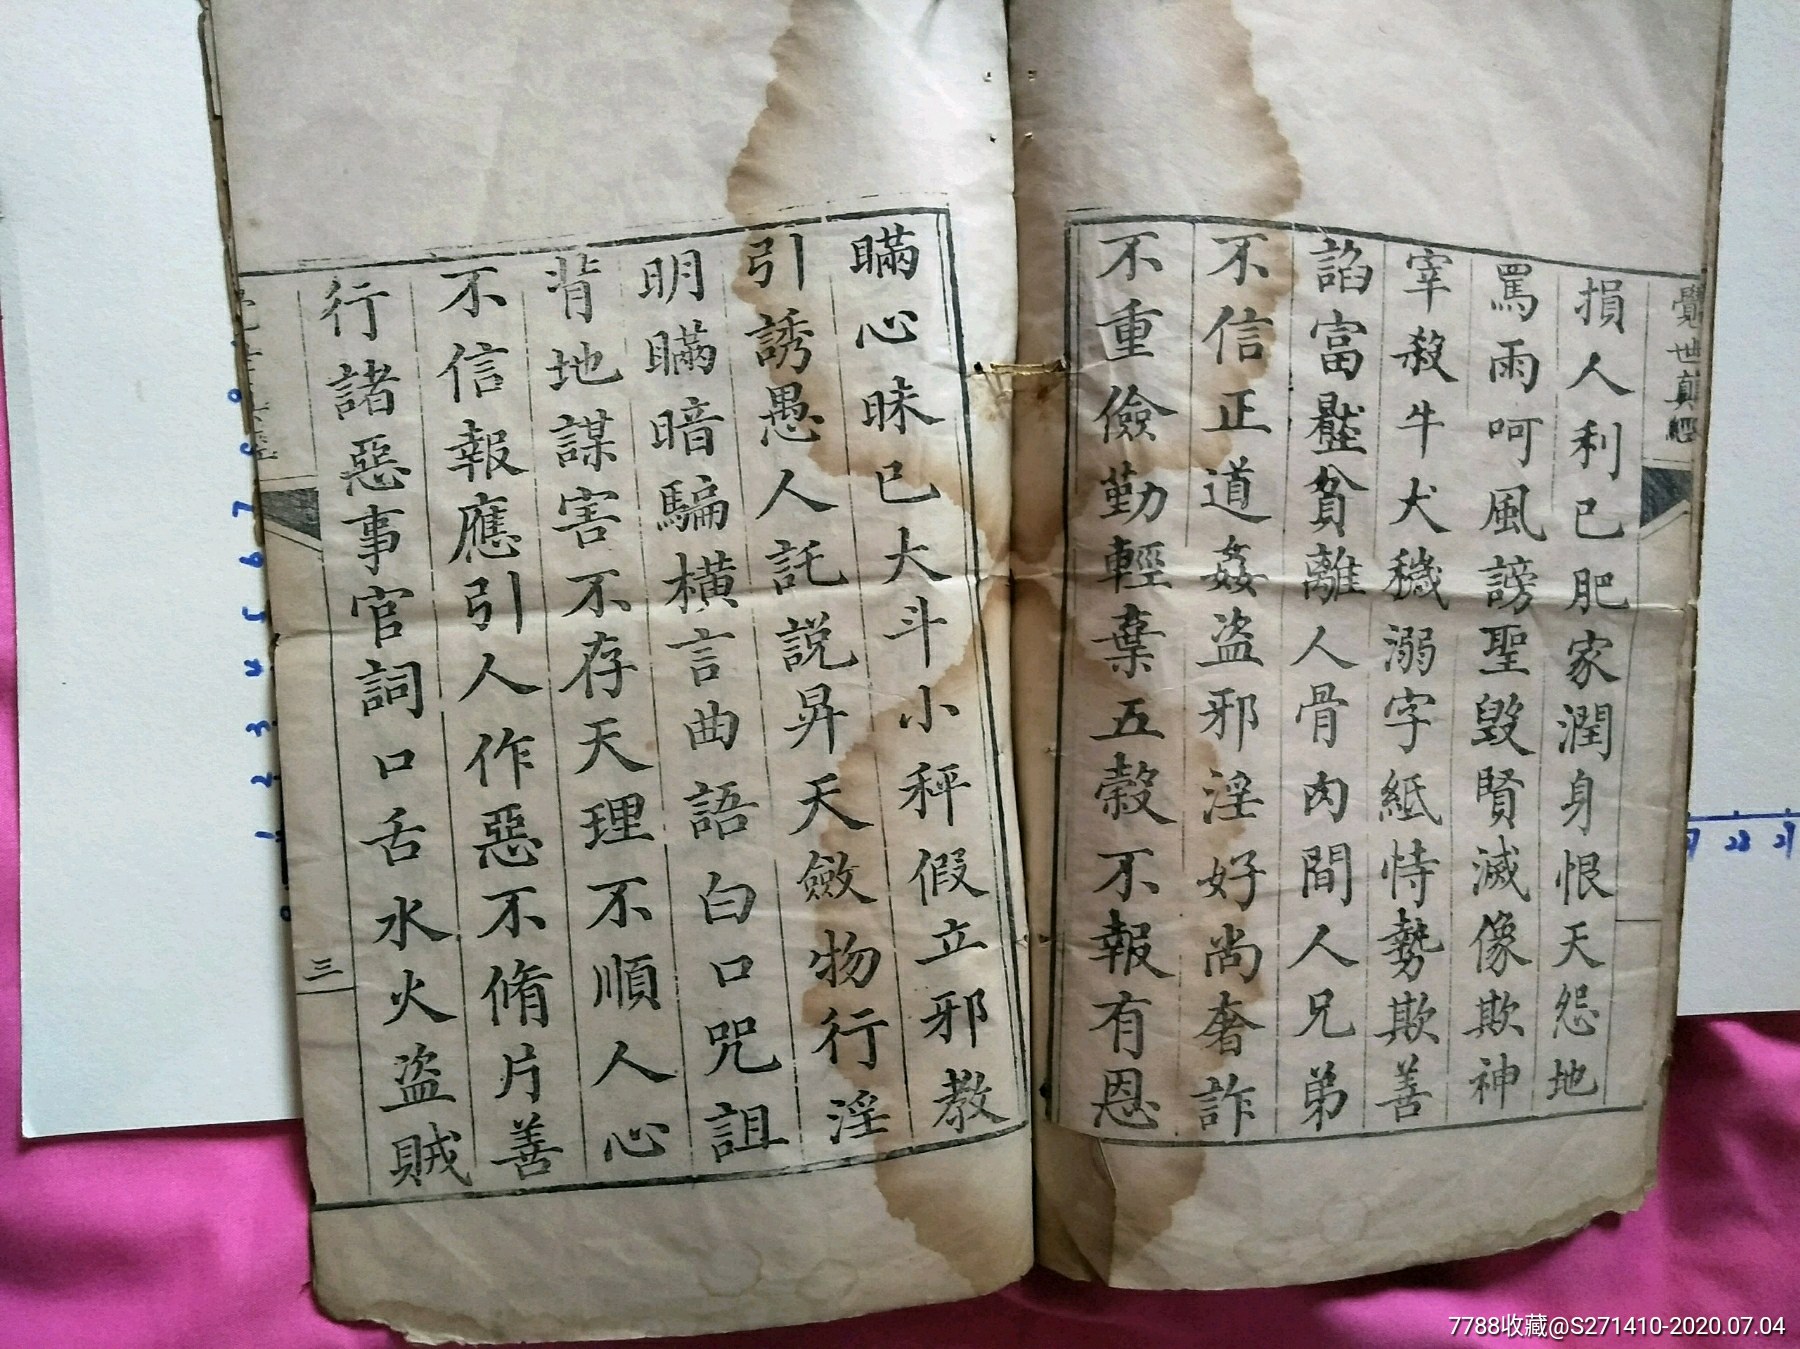 覺世真經
損人利已肥家潤身恨天怨地
罵雨呵風謗聖毀賢滅像欺神
宰殺牛犬穢溺字紙恃勢欺善
諂富壓貧離人骨肉間人兄弟
不信正道姦盜邪淫好尚奢詐
不重儉勤輕棄五穀不報有恩
瞞心昧已大斗小秤假立邪教
引誘愚人託説昇天斂物行淫
明瞞暗騙橫言曲語白口咒詛
背地謀害不存天理不順人心
不信報應引人作惡不脩片善
行諸惡事官詞口舌水火盜賊
三
9 8 7 6 5 4 3 2 1 0
7788收藏@S271410-2020.07.04